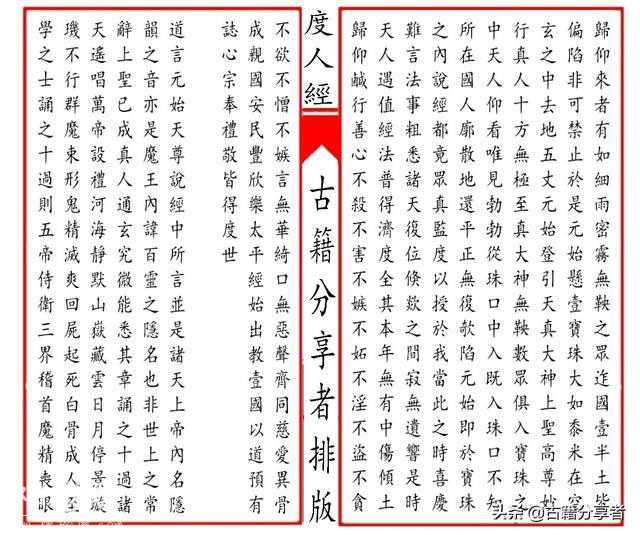 歸仰來者有如細雨密霧無鞅之眾迮國壹半土皆
偏陷非可禁止於是元始懸壹寶珠大如黍米在空
玄之中去地五丈元始登引天真大神上聖高尊妙
行真人十方無極至真大神無鞅數眾俱入寶珠之
中天人仰看唯見勃勃從珠口中入既入珠口不知
所在國人廓散地還平正無復欹陷元始即於寶珠
之內說經都竟眾真監度以授於我當此之時喜慶
難言法事粗悉諸天復位倏欻之間寂無遺響是時
天人遇值經法普得濟度全其本年無有中傷傾土
歸仰鹹行善心不殺不害不嫉不妬不淫不盜不貪
度人經
古籍分享者排版
不欲不憎不嫉言無華綺口無惡聲齊同慈愛異骨
成親國安民豐欣樂太平經始出教壹國以道預有
誌心宗奉禮敬皆得度世
道言元始天尊說經中所言並是諸天上帝內名隱
韻之音亦是魔王內諱百靈之隱名也非世上之常
辭上聖已成真人通玄究微能悉其章誦之十過諸
天遙唱萬帝設禮河海靜默山嶽藏雲日月停景璇
璣不行群魔束形鬼精滅爽回屍起死白骨成人至
學之士誦之十過則五帝侍衛三界稽首魔精喪眼
头条@古籍分享者